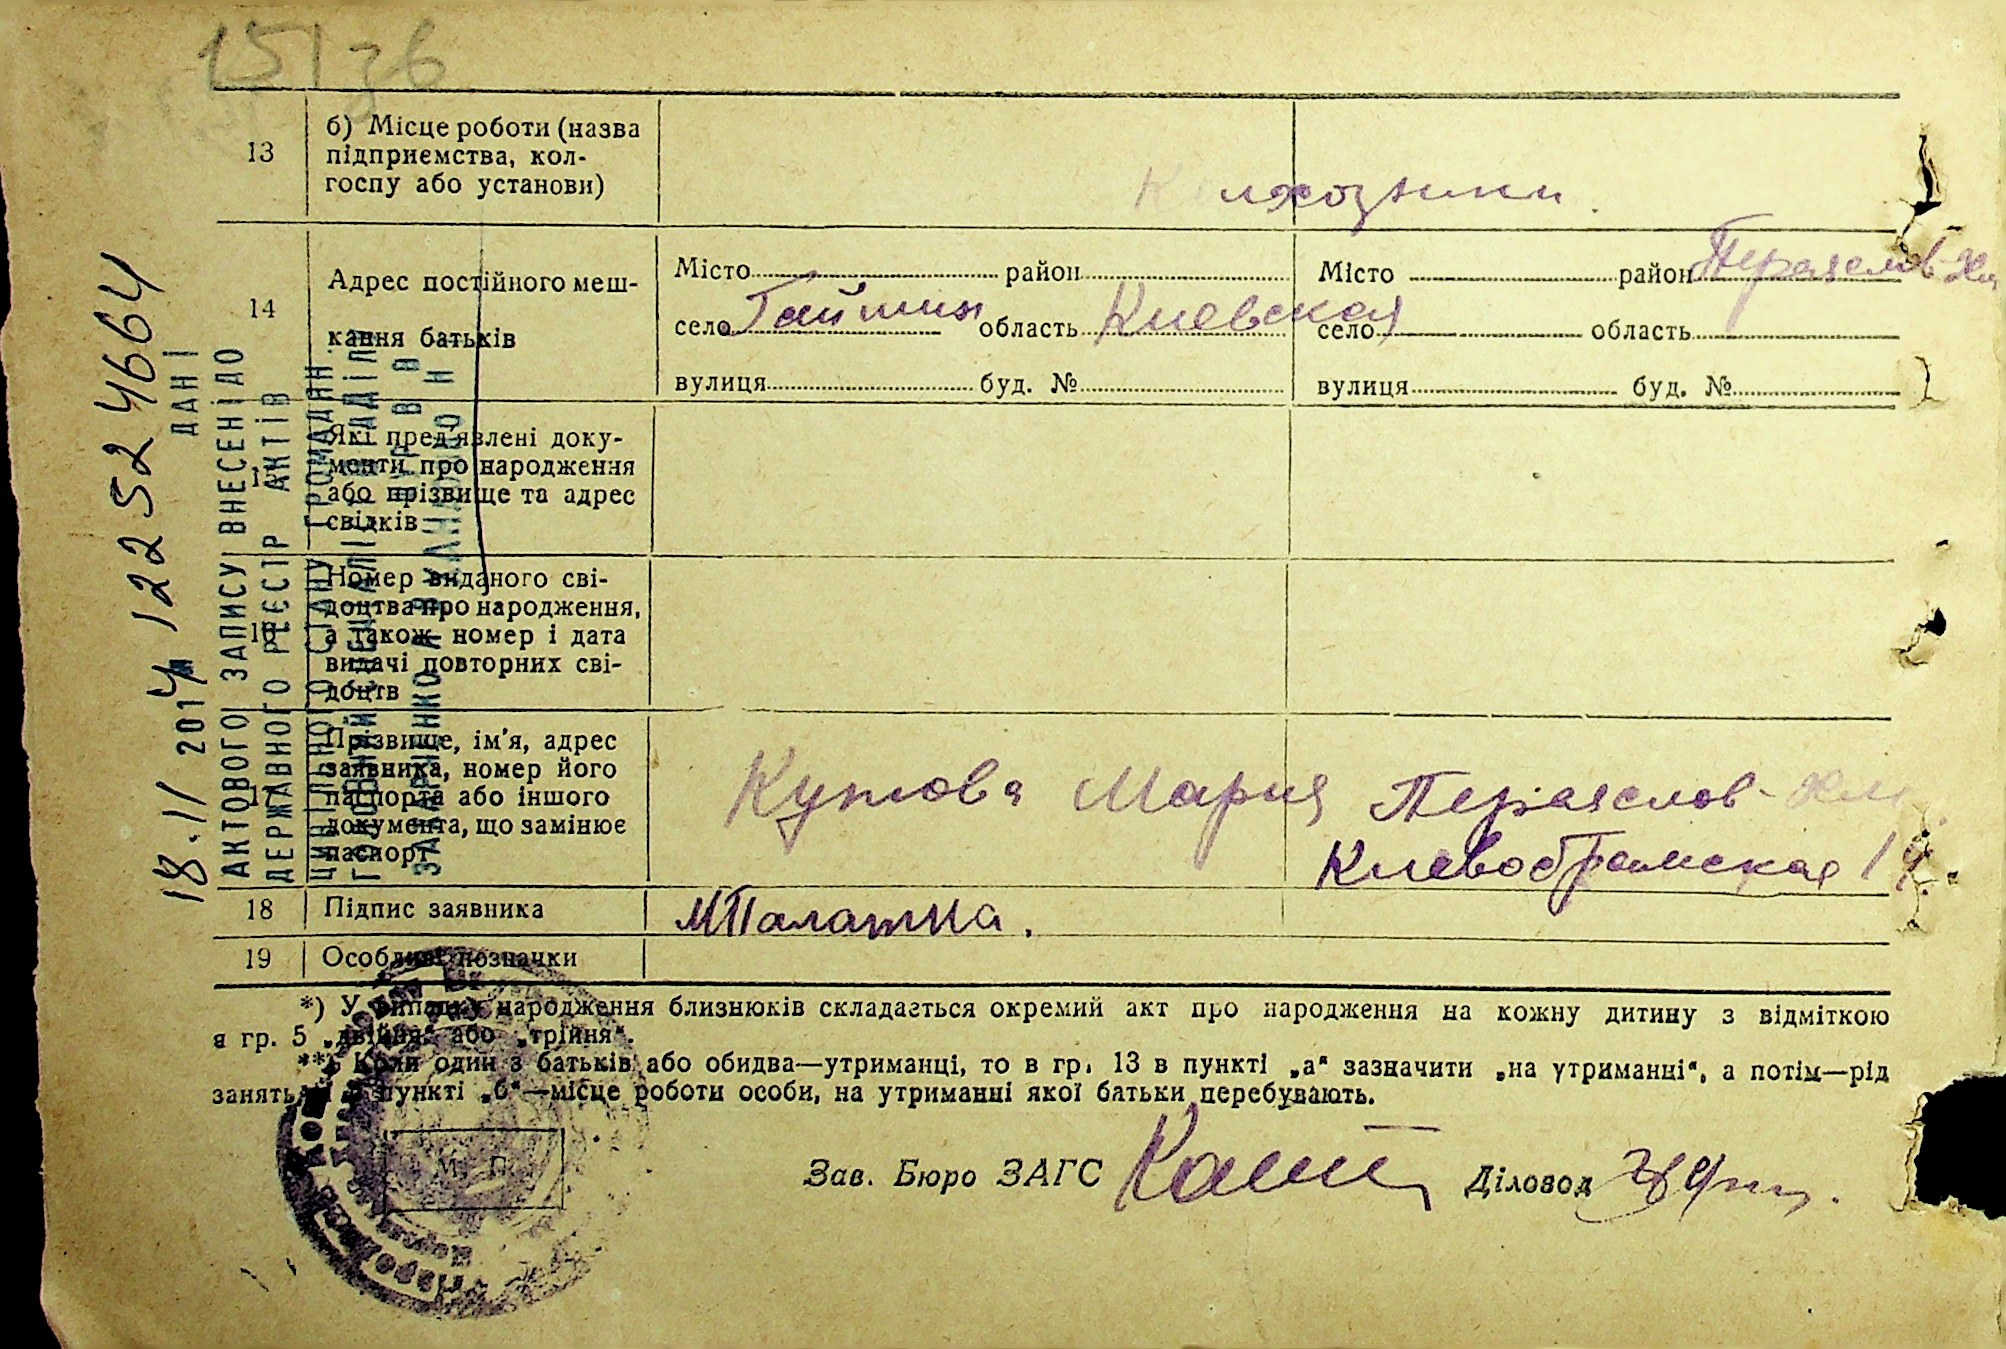 151 36
13
б) Місце роботи (назва
підприємства, кол-
госпу або установи)
Колхозники.
14
Адрес постійного меш-
кання батьків
Місто район
село Гайшин область Киевская
вулиця буд. №
Місто район Переяслов-Хм
село область
вулиця буд. №
15
Які пред'явлені доку-
менти про народження
або прізвище та адрес
свідків
16
Номер виданого сві-
доцтва про народження,
а також номер і дата
видачі повторних сві-
доцтв
17
Прізвище, ім'я, адрес
заявника, номер його
паспорта або іншого
документа, що замінює
паспорт
Кутова Мария Переяслов-Хм
Киевобрамская 14.
18 Підпис заявника
МПалатка.
19 Особливі позначки
*) У випадку народження близнюків складається окремий акт про народження на кожну дитину з відміткою
в гр. 5 „двійня" або „трійня".
**) Коли один з батьків або обидва—утриманці, то в гр. 13 в пункті „а" зазначити „на утриманні", а потім—рід
занять, а в пункті „б"—місце роботи особи, на утриманні якої батьки перебувають.
М. П.
Зав. Бюро ЗАГС Діловод
12252 4664
ДАНІ
18.11 2014
АКТОВОГО ЗАПИСУ ВНЕСЕНІ ДО
ДЕРЖАВНОГО РЕЄСТР АКТІВ
ЦИВІЛЬНОГО СТАНУ ГРОМАДЯН.
ГОЛОВНИЙ СПЕЦІАЛІСТ ВІДДІЛ